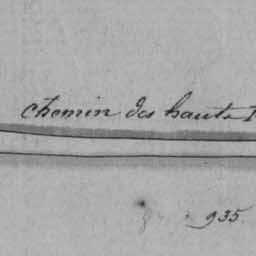 chemin des hauts
935